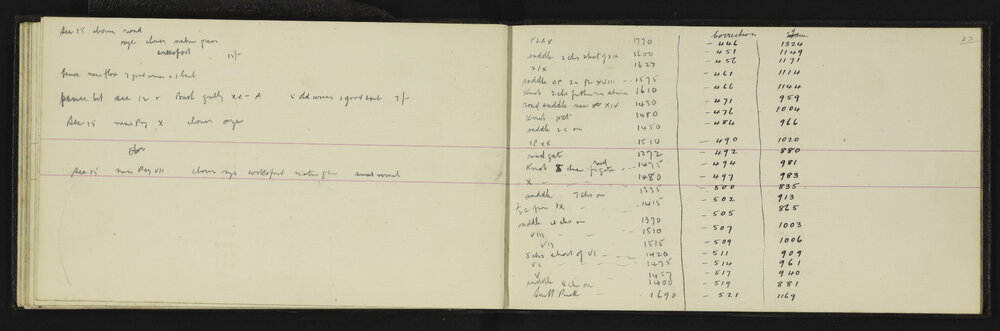 Sec 15 above road
rye clover native grass
cocksfoot 15/-
fence near flax 7 good wires 1 bad
Sec 12 Bush gully XX - A 5 old wires 1 good barb 7/-
Sec 15 near Peg X clover rye
Sec 15 near Peg VII clover rye cocksfoot native gr sweet vernal
27
Correction
FLAX 1770 - 446 1324
saddle 2 chs short of XIX 1600 - 451 1149
XIX 1627 - 456 1171
saddle op 20 ft XVIII - 1575 - 461 1114
Knob 2 chs further on 1610 - 466 1144
road saddle near XIV 1430 - 471 959
Knob 1480 - 476 1004
saddle 2 c on 1450 - 484 966
IP XX 1510 - 490 1020
road gate 1372 - 492 880
Knob 8 chs road gate - 1475 - 494 981
X - 1480 - 497 983
saddle 7 chs on - 1335 - 500 835
1/2 c from IX - 1415 - 502 913
saddle 4 chs on 1370 - 505 865
VIII - 1510 - 507 1003
VII 1515 - 509 1006
8 chs short of VI - 1420 - 511 909
VI - 1475 - 514 961
V - 1457 - 517 940
saddle 8 chs on - 1400 - 519 881
South Peak - 1690 - 521 1169